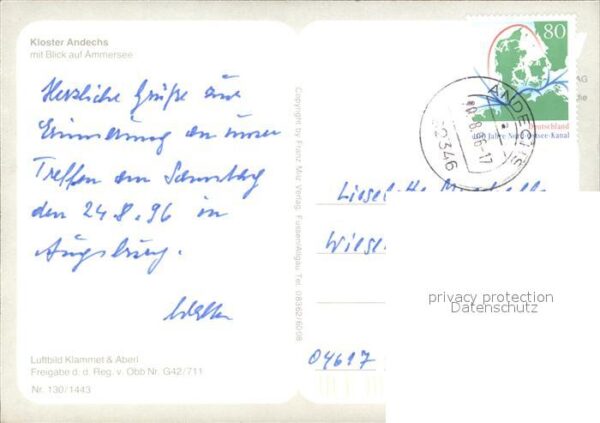 Kloster Andechs
mit Blick auf Ammersee
Herzliche Grüße zur
Erinnerung an unser
Treffen am Samstag
den 24.8.96 in
Augsburg.
Luftbild Klammet & Aberl
Freigabe d. d. Reg. v. Obb Nr. G42/711
Nr. 130/1443
Copyright by Franz Milz Verlag, Füssen/Allgäu Tel. 08362/6098
80
Deutschland
100 Jahre Nord-Ostsee-Kanal
ANDECHS
82346
8.96-17
Lieselotte
04617
privacy protection
Datenschutz